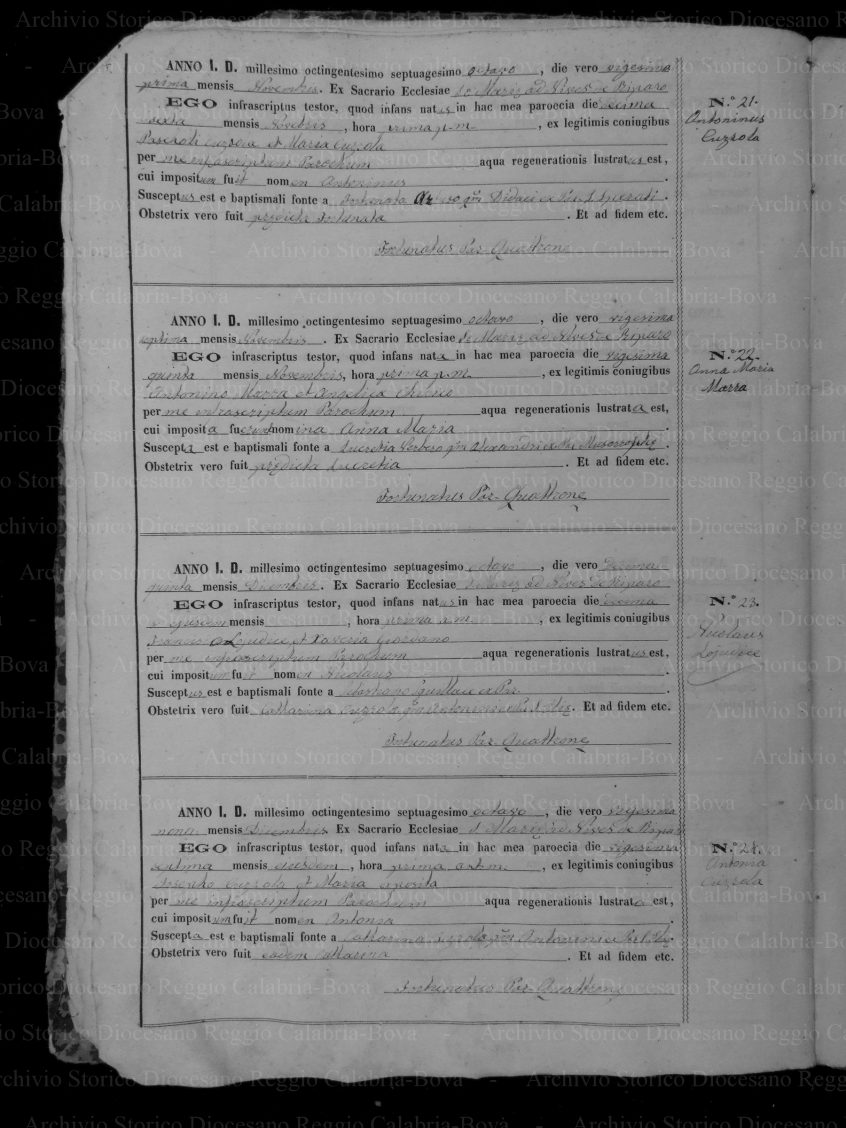 ANNO I. D. millesimo octingentesimo septuagesimo octavo, die vero vigesima
prima mensis Novembris. Ex Sacrario Ecclesiae S. Mariae ad Nives de Riparo
EGO infrascriptus testor, quod infans natus in hac mea paroecia die decima
sexta mensis Novebris, hora prima p.m., ex legitimis coniugibus
et Maria Cuzzola
per me infrascriptum Parochum aqua regenerationis lustratus est,
cui impositum fuit nomen Antoninus.
Susceptus est e baptismali fonte a Fortunata
Obstetrix vero fuit predicta Fortunata. Et ad fidem etc.
Fortunatus Par. Quattrone
N.º 21.
Antoninus
Cuzzola
ANNO I. D. millesimo octingentesimo septuagesimo octavo, die vero vigesima
septima mensis Novembris. Ex Sacrario Ecclesiae S. Mariae ad Nives de Riparo
EGO infrascriptus testor, quod infans nata in hac mea paroecia die vigesima
quinta mensis Novembris, hora prima p.m., ex legitimis coniugibus
Antonino Marra et Angelica
per me infrascriptum Parochum aqua regenerationis lustrata est,
cui imposita fuerunt nomina Anna Maria
Suscepta est e baptismali fonte a Lucretia
Obstetrix vero fuit predicta Lucretia. Et ad fidem etc.
Fortunatus Par. Quattrone
N.º 22.
Anna Maria
Marra
ANNO I. D. millesimo octingentesimo septuagesimo octavo, die vero decima
quinta mensis Dicembris. Ex Sacrario Ecclesiae S. Mariae ad Nives de Riparo
EGO infrascriptus testor, quod infans natus in hac mea paroecia die decima
ejusdem mensis, hora prima a.m., ex legitimis coniugibus
Lojudice et Xaveria Giordano
per me infrascriptum Parochum aqua regenerationis lustratus est,
cui impositum fuit nomen Nicolaus.
Susceptus est e baptismali fonte a
Obstetrix vero fuit Cattarina Cuzzola. Et ad fidem etc.
Fortunatus Par. Quattrone
N.º 23.
Nicolaus
Lojudice
ANNO I. D. millesimo octingentesimo septuagesimo octavo, die vero vigesima
nona mensis Dicembris Ex Sacrario Ecclesiae S. Mariae ad Nives de Riparo
EGO infrascriptus testor, quod infans nata in hac mea paroecia die vigesima
septima mensis eiusdem, hora prima ant.m., ex legitimis coniugibus
Cuzzola et Maria
per me infrascriptum Parochum aqua regenerationis lustrata est,
cui impositum fuit nomen Antonia.
Suscepta est e baptismali fonte a Cattarina Cuzzola
Obstetrix vero fuit eadem Cattarina. Et ad fidem etc.
Fortunatus Par. Quattrone
N.º 24.
Antonia
Cuzzola
Archivio Storico Diocesano Reggio Calabria-Bova